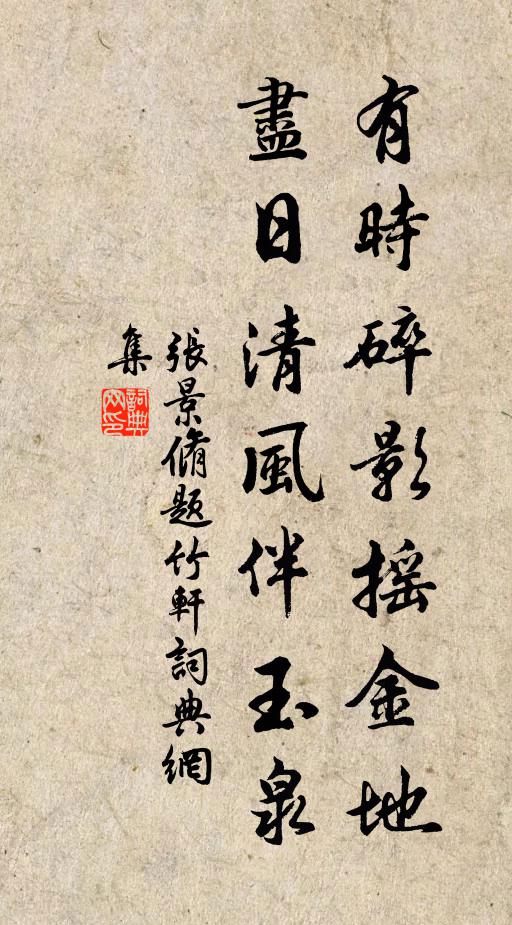 有時碎影摇金地
盡日清風伴玉泉
張景脩題竹軒詞典網
集
詞典
网印